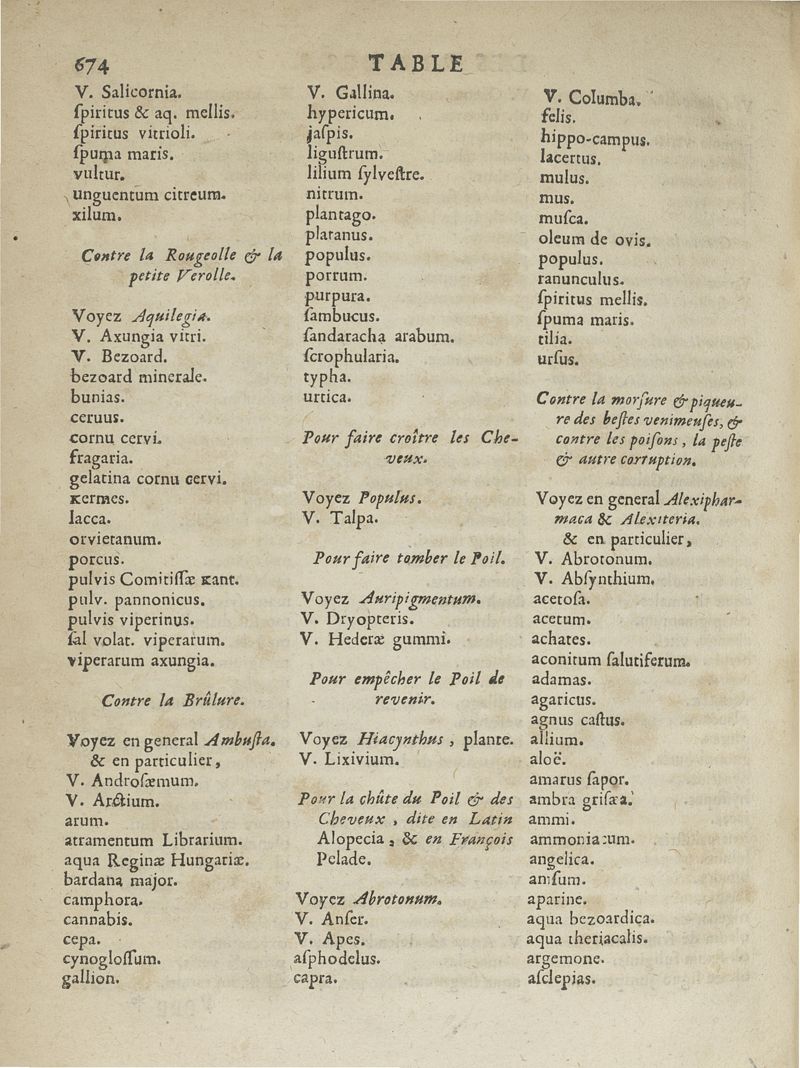 674
TABLE
V. Salicornia.
ſpiritus & aq. mellis.
ſpiritus vitrioli.
ſpuma maris.
vultur.
unguentum citreum.
xilum.
Contre la Rougeolle & la
petite Verolle.
Voyez Aquilegia.
V. Axungia vitri.
V. Bezoard.
bezoard minerale.
bunias.
ceruus.
cornu cervi.
fragaria.
gelatina cornu cervi.
kermes.
lacca.
orvietanum.
porcus.
pulvis Comitiſſæ Kant.
pulv. pannonicus.
pulvis viperinus.
ſal volat. viperarum.
viperarum axungia.
Contre la Brûlure.
Voyez en general Ambuſta.
& en particulier,
V. Androſæmum.
V. Arctium.
arum.
atramentum Librarium.
aqua Reginæ Hungariæ.
bardana major.
camphora.
cannabis.
cepa.
cynogloſſum.
gallion.
V. Gallina.
hypericum.
jaſpis.
liguſtrum.
lilium ſylveſtre.
nitrum.
plantago.
platanus.
populus.
porrum.
purpura.
ſambucus.
ſandaracha arabum.
ſcrophularia.
typha.
urtica.
Pour faire croître les Che-
veux.
Voyez Populus.
V. Talpa.
Pour faire tomber le Poil.
Voyez Auripigmentum.
V. Dryopteris.
V. Hederæ gummi.
Pour empêcher le Poil de
revenir.
Voyez Hiacynthus, plante.
V. Lixivium.
Pour la chûte du Poil & des
Cheveux, dite en Latin
Alopecia, & en François
Pelade.
Voyez Abrotonum.
V. Anſer.
V. Apes.
aſphodelus.
capra.
V. Columba.
felis.
hippo-campus.
lacertus.
mulus.
mus.
muſca.
oleum de ovis.
populus.
ranunculus.
ſpiritus mellis.
ſpuma maris.
tilia.
urſus.
Contre la morſure & piqueu-
re des beſtes venimeuſes, &
contre les poiſons, la peſte
& autre corruption.
Voyez en general Alexiphar-
maca & Alexiteria.
& en particulier,
V. Abrotonum.
V. Abſynthium.
acetoſa.
acetum.
achates.
aconitum ſalutiferum.
adamas.
agaricus.
agnus caſtus.
allium.
aloë.
amarus ſapor.
ambra griſæa.
ammi.
ammoniacum.
angelica.
aniſum.
aparine.
aqua bezoardica.
aqua theriacalis.
argemone.
aſclepias.